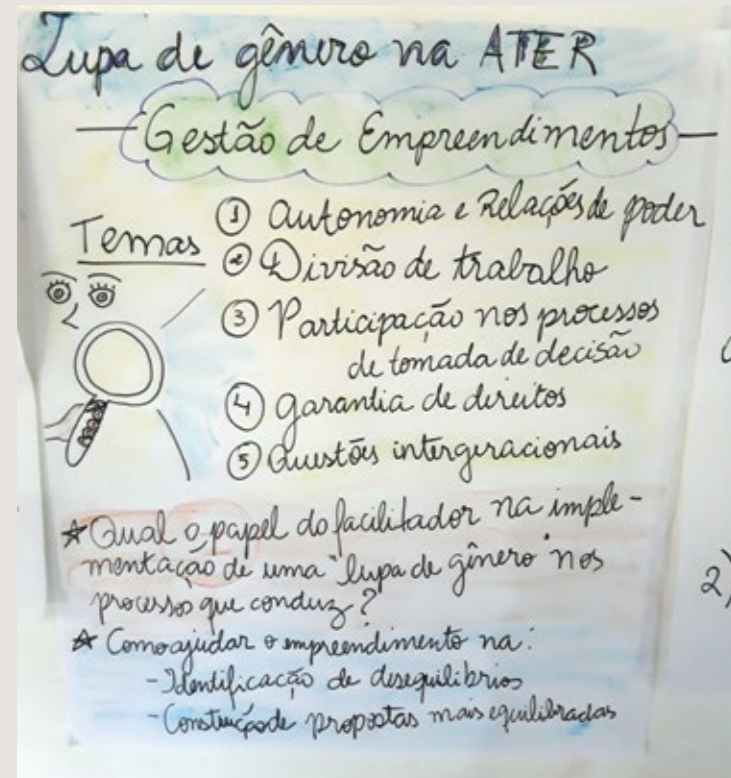 Lupa de gênero na ATER
Gestão de Empreendimentos
Temas
① Autonomia e Relações de poder
② Divisão de trabalho
③ Participação nos processos
de tomada de decisão
④ garantia de direitos
⑤ Questões intergeracionais
★ Qual o papel do facilitador na imple-
mentação de uma "lupa de gênero" nos
processos que conduz?
★ Como ajudar o empreendimento na:
- Identificação de desequilíbrios
- Construção de propostas mais equilibradas
2)